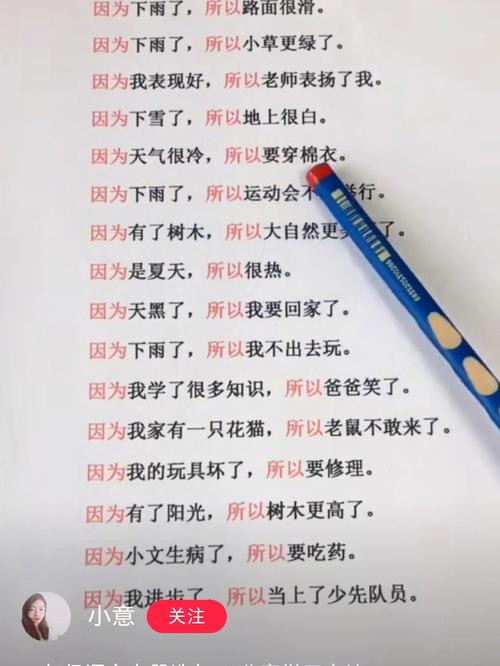 因为下雨了，所以路面很滑。
因为下雨了，所以小草更绿了。
因为我表现好，所以老师表扬了我。
因为下雪了，所以地上很白。
因为天气很冷，所以要穿棉衣。
因为下雨了，所以运动会不举行。
因为有了树木，所以大自然更了。
因为是夏天，所以很热。
因为天黑了，所以我要回家了。
因为下雨了，所以我不出去玩。
因为我学了很多知识，所以爸爸笑了。
因为我家有一只花猫，所以老鼠不敢来了。
因为我的玩具坏了，所以要修理。
因为有了阳光，所以树木更高了。
因为小文生病了，所以要吃药。
因为我进步了，所以当上了少先队员。
小意 关注